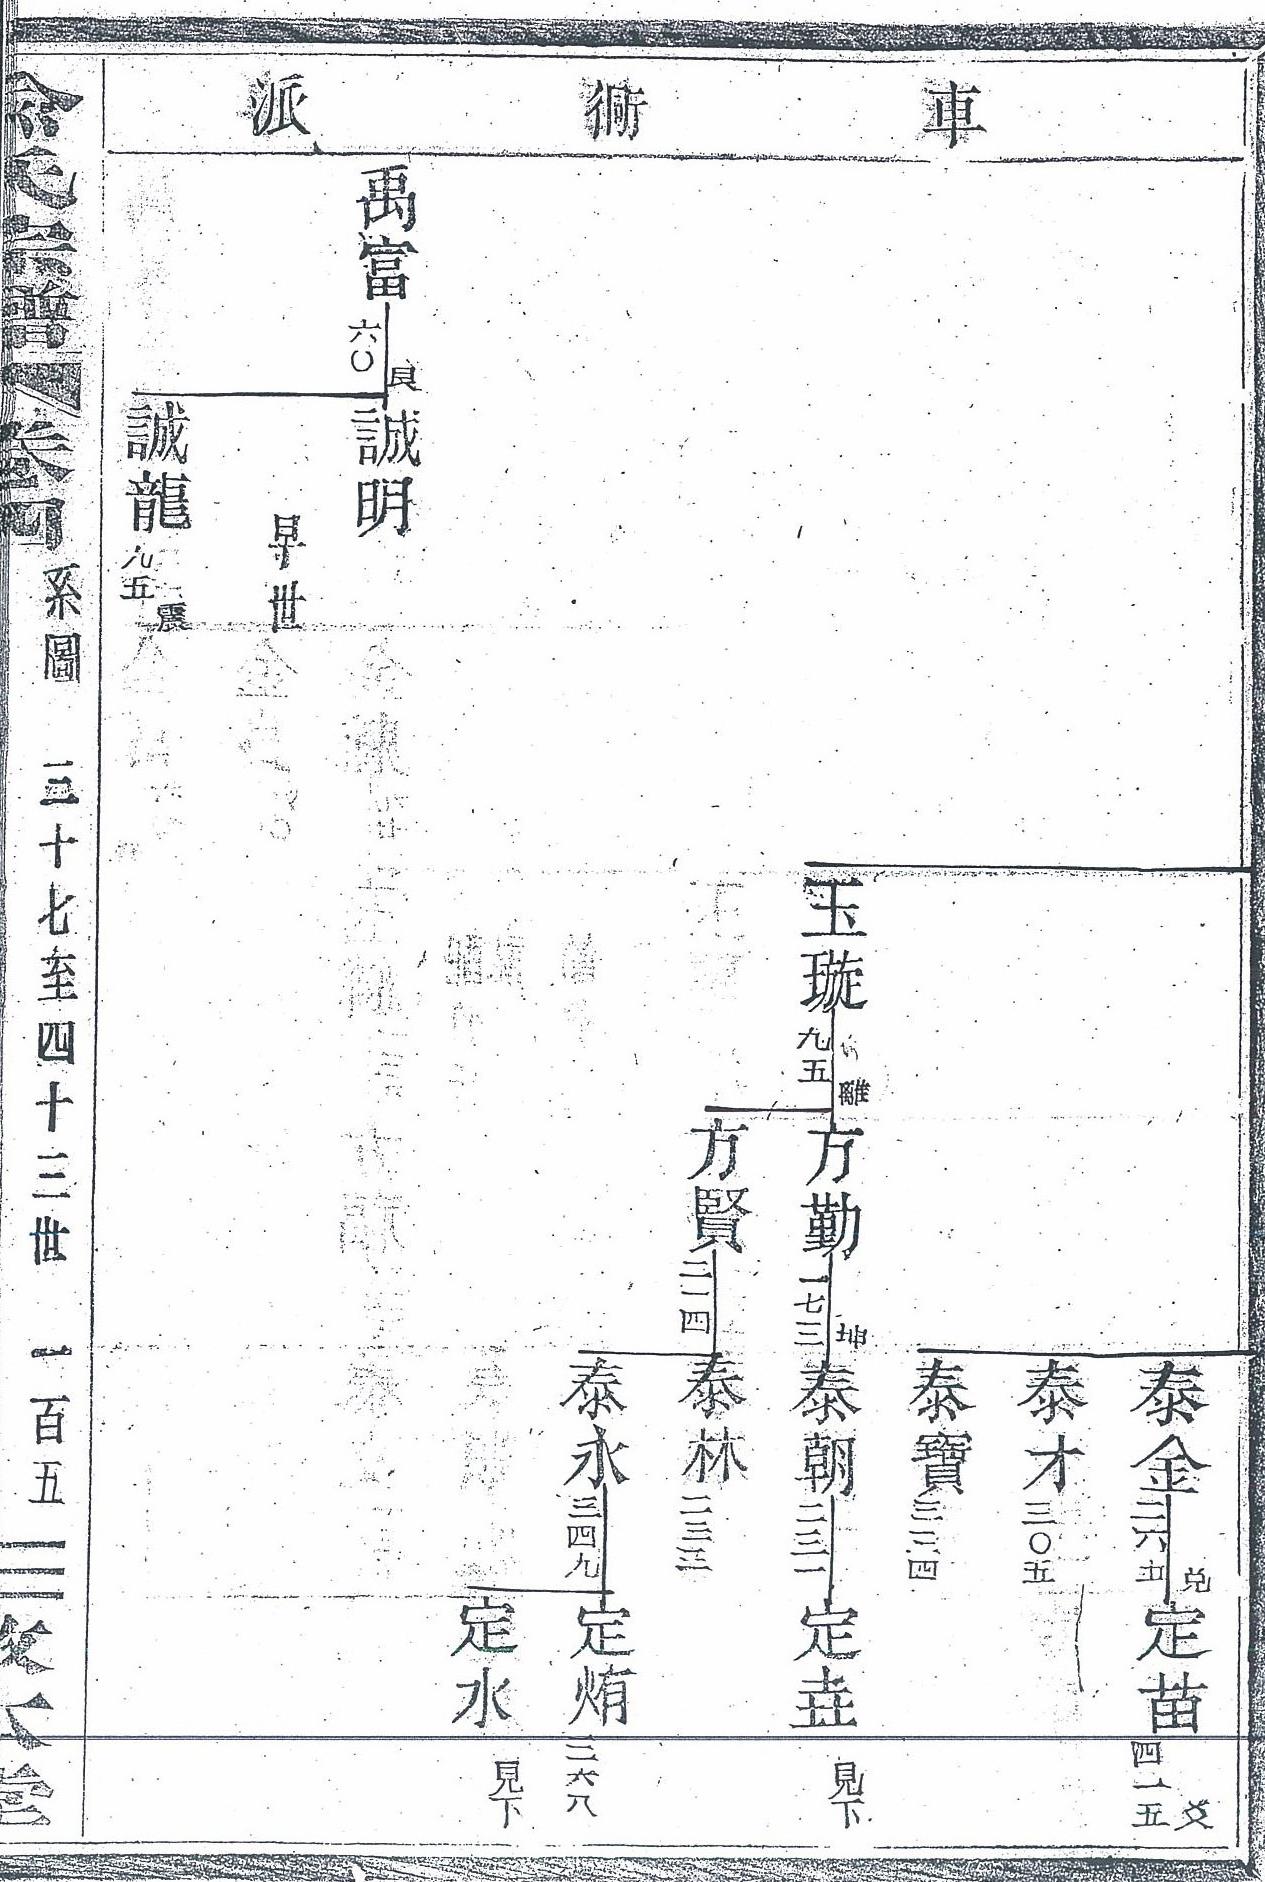 車衕派
泰金
二六五
兌
定苗
四一五
爻
泰才
三〇五
泰寶
三三四
玉璇
九五
離
方勤
一七三
坤
泰朝
二三一
定垚
見下
方賢
二一四
泰林
二三三
泰永
三四九
定烠
三六八
定水
見下
禹富
六〇
艮
誠明
早世
誠龍
九五
震
余氏宗譜
卷四
系圖
三十七至四十三世
一百五